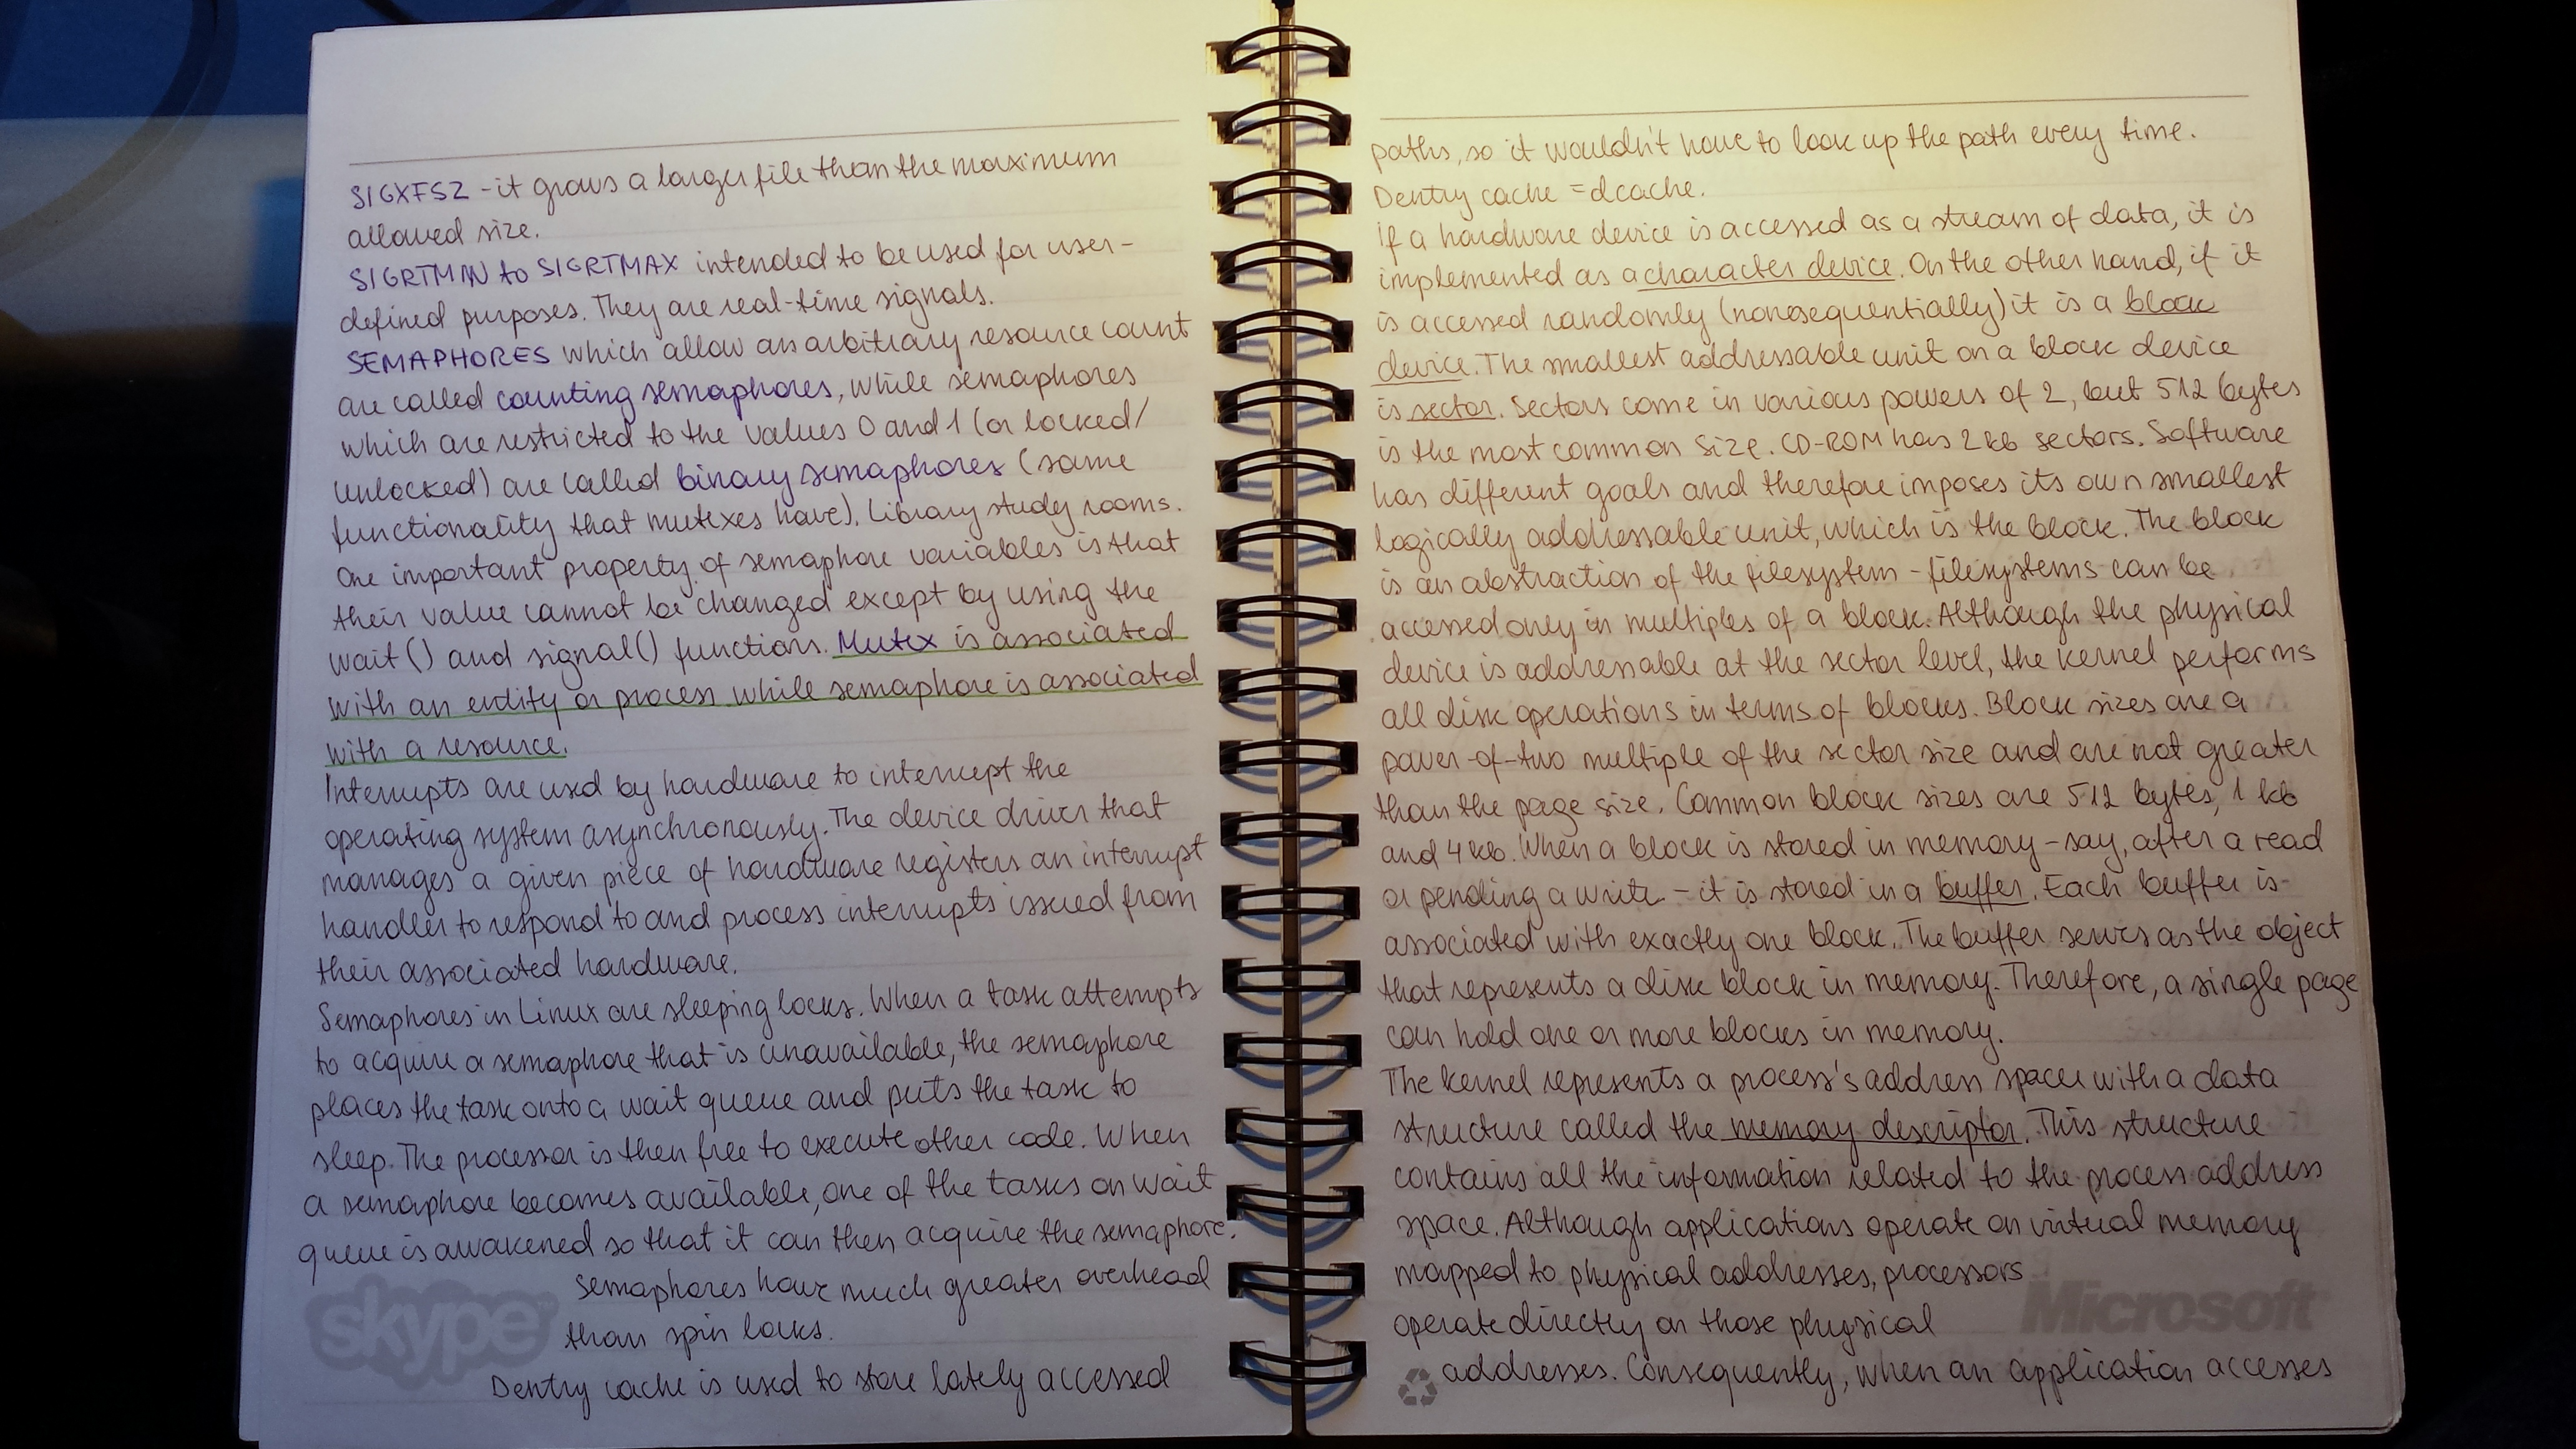 SIGXFSZ - it grows a larger file than the maximum
allowed size.
SIGRTMIN to SIGRTMAX intended to be used for user-
defined purposes. They are real-time signals.
SEMAPHORES which allow an arbitrary resource count
are called counting semaphores, while semaphores
which are restricted to the values 0 and 1 (or locked/
unlocked) are called binary semaphores (same
functionality that mutexes have). Library study rooms.
One important property of semaphore variables is that
their value cannot be changed except by using the
wait() and signal() functions. Mutex is associated
with an entity or process while semaphore is associated
with a resource.
Interrupts are used by hardware to interrupt the
operating system asynchronously. The device driver that
manages a given piece of hardware registers an interrupt
handler to respond to and process interrupts issued from
their associated hardware.
Semaphores in Linux are sleeping locks. When a task attempts
to acquire a semaphore that is unavailable, the semaphore
places the task onto a wait queue and puts the task to
sleep. The processor is then free to execute other code. When
a semaphore becomes available, one of the tasks on wait
queue is awakened so that it can then acquire the semaphore.
Semaphores have much greater overhead
than spin locks.
Dentry cache is used to store lately accessed
skype™
paths, so it wouldn't have to look up the path every time.
Dentry cache = dcache.
If a hardware device is accessed as a stream of data, it is
implemented as a character device. On the other hand, if it
is accessed randomly (nonsequentially) it is a block
device. The smallest addressable unit on a block device
is sector. Sectors come in various powers of 2, but 512 bytes
is the most common size. CD-ROM has 2 kb sectors. Software
has different goals and therefore imposes its own smallest
logically addressable unit, which is the block. The block
is an abstraction of the filesystem - filesystems can be
accessed only in multiples of a block. Although the physical
device is addressable at the sector level, the kernel performs
all disk operations in terms of blocks. Block sizes are a
power-of-two multiple of the sector size and are not greater
than the page size. Common block sizes are 512 bytes, 1 kb
and 4 kb. When a block is stored in memory - say, after a read
or pending a write - it is stored in a buffer. Each buffer is
associated with exactly one block. The buffer serves as the object
that represents a disk block in memory. Therefore, a single page
can hold one or more blocks in memory.
The kernel represents a process's address space with a data
structure called the memory descriptor. This structure
contains all the information related to the process address
space. Although applications operate on virtual memory
mapped to physical addresses, processors
operate directly on those physical
addresses. Consequently, when an application accesses
Microsoft